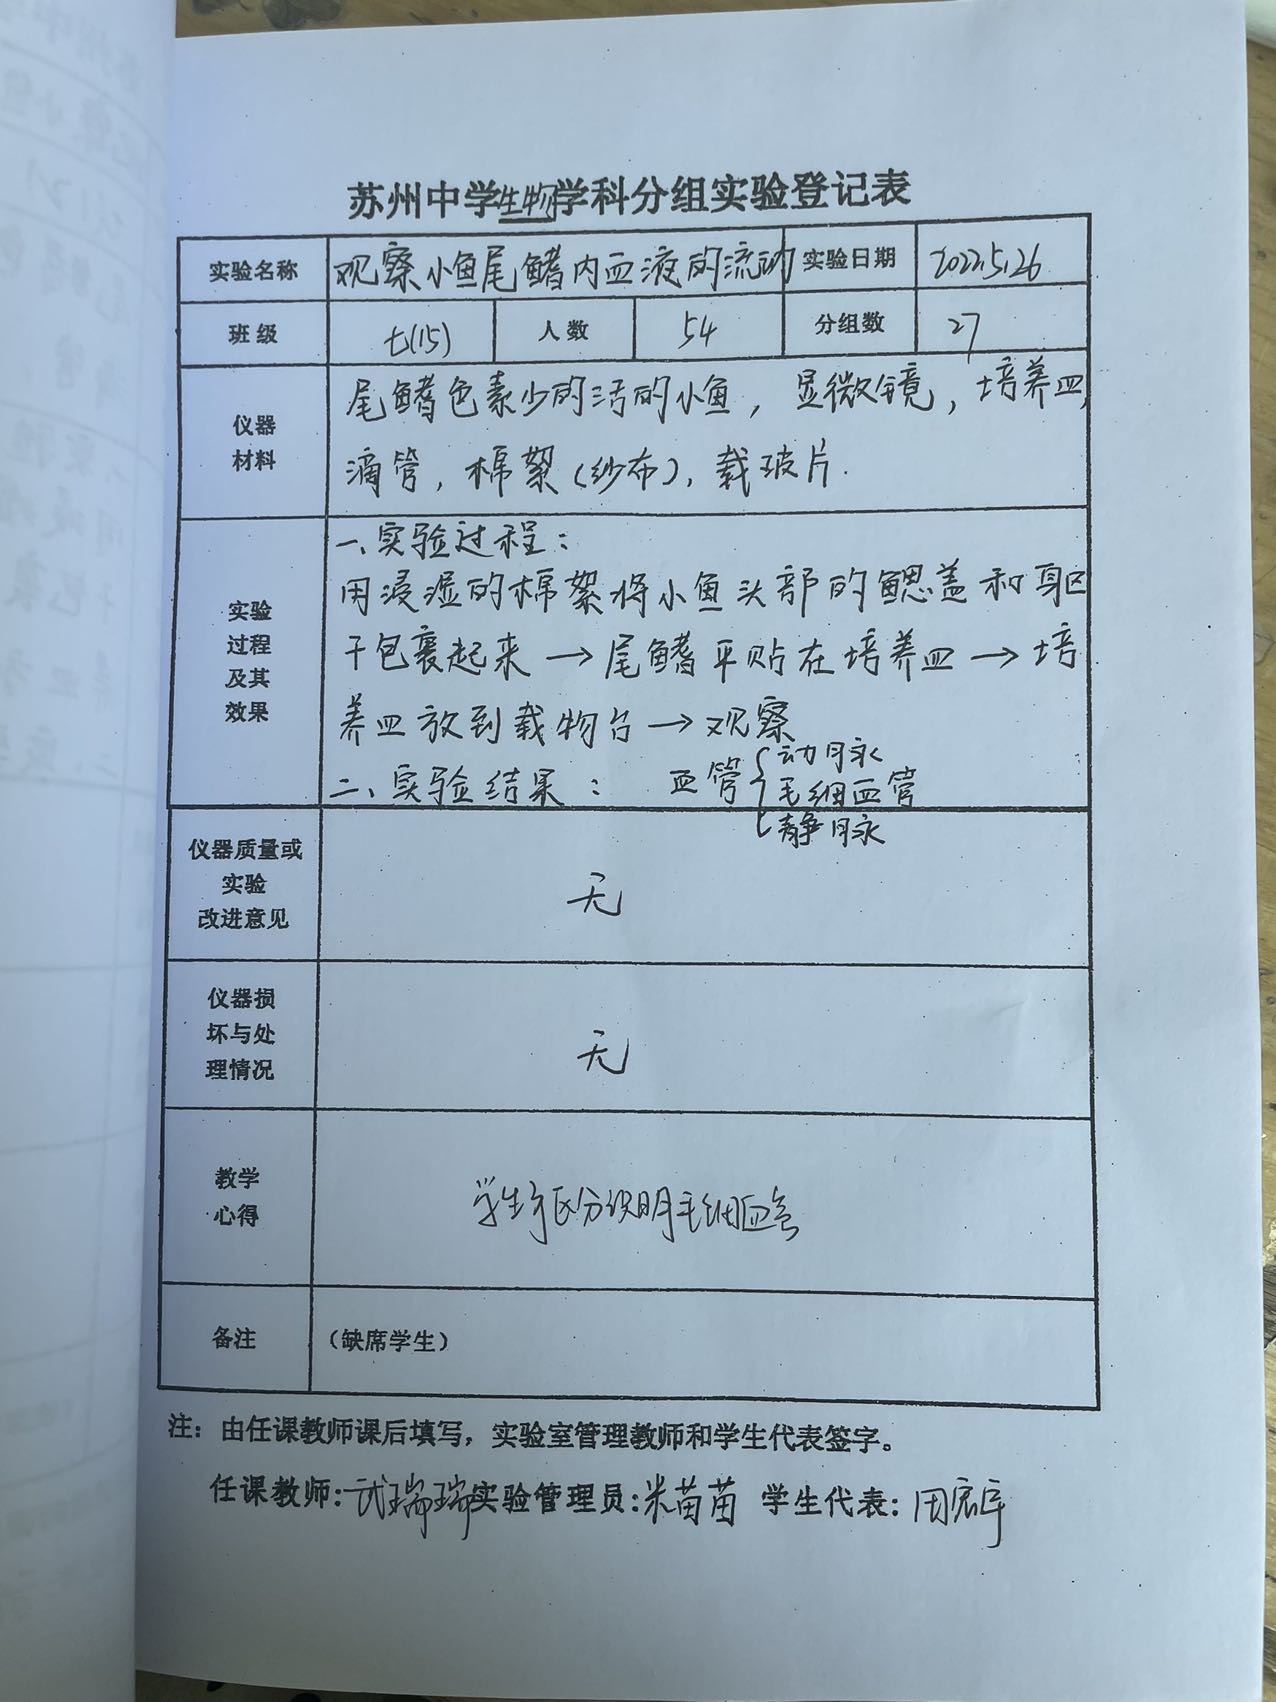 苏州中学生物学科分组实验登记表
实验名称 观察小鱼尾鳍内血液的流动 实验日期 2022.5.26
班级 七(15) 人数 54 分组数 27
仪器
材料
尾鳍色素少的活的小鱼，显微镜，培养皿，
滴管，棉絮(纱布)，载玻片.
实验
过程
及其
效果
一、实验过程：
用浸湿的棉絮将小鱼头部的鳃盖和躯
干包裹起来→尾鳍平贴在培养皿→培
养皿放到载物台→观察
二、实验结果： 血管{动脉
毛细血管
静脉
仪器质量或
实验
改进意见
无
仪器损
坏与处
理情况
无
教学
心得
学生 区分 明毛细血管
备注 （缺席学生）
注：由任课教师课后填写，实验室管理教师和学生代表签字。
任课教师：武瑞瑞 实验管理员：米苗苗 学生代表：